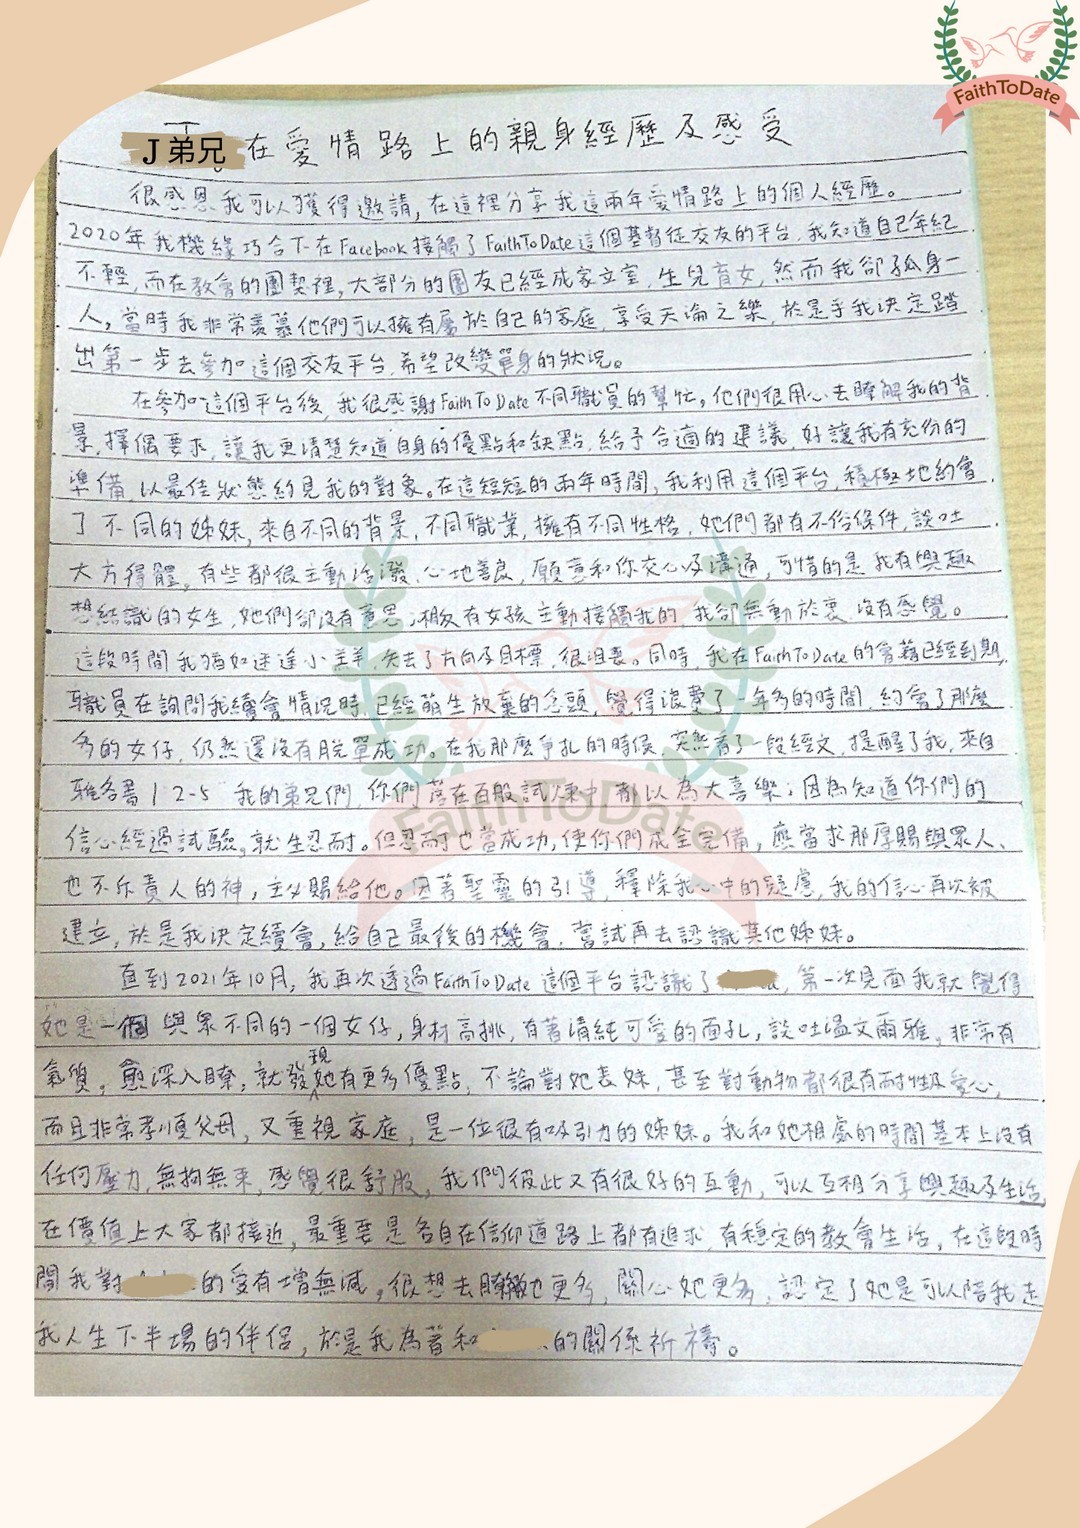 FaithToDate
J 弟兄 在愛情路上的親身經歷及感受
很感恩我可以獲得邀請,在這裡分享我這兩年愛情路上的個人經歷。
2020年我機緣巧合下在Facebook接觸了FaithToDate這個基督徒交友的平台,我知道自己年紀
不輕,而在教會的團契裡,大部分的團友已經成家立室,生兒育女,然而我卻孤身一
人,當時我非常羨慕他們可以擁有屬於自己的家庭,享受天倫之樂,於是乎我決定踏
出第一步去參加這個交友平台,希望改變單身的狀況。
在參加這個平台後,我很感謝FaithToDate不同職員的幫忙,他們很用心去瞭解我的背
景,擇偶要求,讓我更清楚知道自身的優點和缺點,給予合適的建議,好讓我有充份的
準備,以最佳狀態約見我的對象。在這短短的兩年時間,我利用這個平台,積極地約會
了不同的姊妹,來自不同的背景,不同職業,擁有不同性格,她們都有不俗條件,談吐
大方得體,有些都很主動活潑,心地善良,願意和你交心及溝通,可惜的是我有興趣
想結識的女生,她們卻沒有意思;相反有女孩主動接觸我的,我卻無動於衷,沒有感覺。
這段時間我猶如迷途小羔羊,失去了方向及目標,很沮喪。同時,我在FaithToDate的會籍已經到期,
職員在詢問我續會情況時,已經萌生放棄的念頭,覺得浪費了一年多的時間,約會了那麼
多的女仔,仍然還沒有脫單成功。在我那麼爭扎的時候,突然看了一段經文,提醒了我,來自
雅各書1 2-5 我的弟兄們,你們落在百般試煉中都以為大喜樂;因為知道你們的
信心經過試驗,就生忍耐。但忍耐也當成功,使你們成全完備,應當求那厚賜與眾人、
也不斥責人的神,主必賜給他。因著聖靈的引導,釋除我心中的疑慮,我的信心再次被
建立,於是我決定續會,給自己最後的機會,嘗試再去認識其他姊妹。
直到2021年10月,我再次透過FaithToDate這個平台認識了,第一次見面我就覺得
她是一個與眾不同的一個女仔,身材高挑,有著清純可愛的面孔,談吐溫文爾雅,非常有
氣質,愈深入瞭,就發現她有更多優點,不論對她表妹,甚至對動物都很有耐性及愛心,
而且非常孝順父母,又重視家庭,是一位很有吸引力的姊妹。我和她相處的時間基本上沒有
任何壓力,無拘無束,感覺很舒服,我們彼此又有很好的互動,可以互相分享興趣及生活,
在價值上大家都接近,最重要是各自在信仰道路上都有追求,有穩定的教會生活,在這段時
間我對的愛有增無減,很想去瞭解她更多,關心她更多,認定了她是可以陪我走
我人生下半場的伴侶,於是我為著和的關係祈禱。
FaithToDate